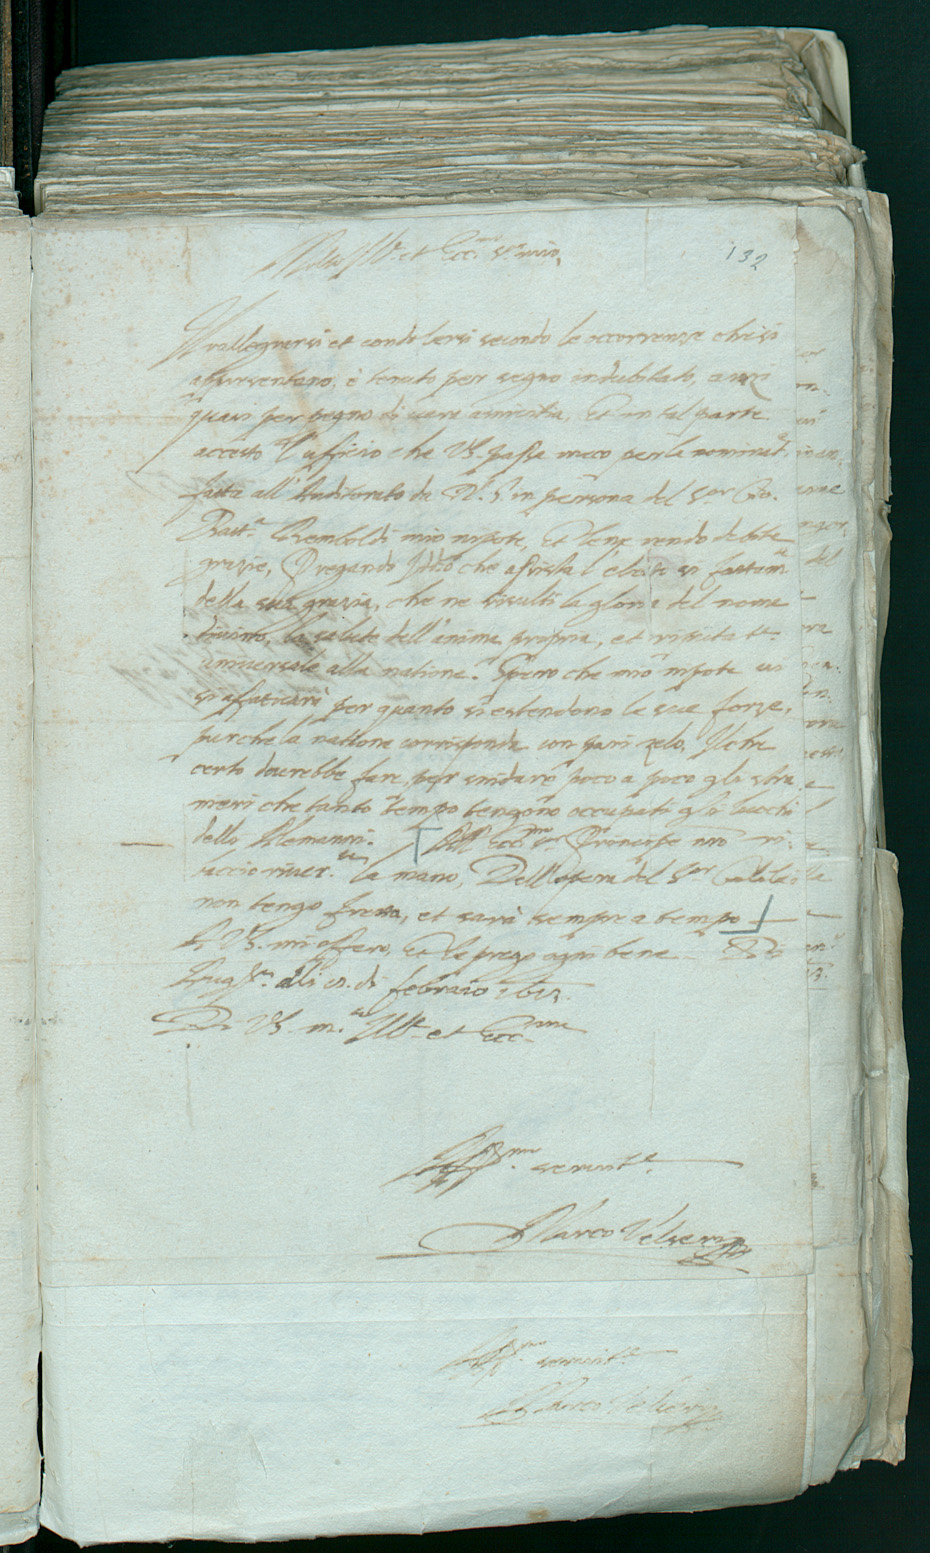 Molto Ill.re et Ecc.mo S.r mio,
132
Il rallegrarsi et condolersi secondo le occorrenze che si
appresentano, è tenuto per segno indubitato, anzi
quasi per pegno di vera amicitia, Et in tal parte
accetto l'ufficio che VS. passa meco per la nominat.e
fatta all' Auditorato da N. S. in persona del S.or Gio.
Batt.a Remboldi mio nipote, Et le ne rendo debite
grazie, Pregando Iddio che assista l'eletto sì fattam.te
della sua grazia, che ne risulti la gloria del nome
divino, la salute dell'anima propria, et
universale alla natione. Spero che mio nipote vi
si affaticarà per quanto si estendono le sue forze,
purche la natione corrisponda con pari zelo, Il che
certo dovrebbe fare, per snidare poco a poco gli stra
nieri che tanto tempo tengono occupati gli luochi
delli Alemanni. All' Ecc.mo Principe mio
faccio river.te la mano, Dell'opera del S.or
non tengo freza, et sarà sempre a tempo
A VS. mi offero, Et le prego ogni bene Di
Aug.ta alli di febraio 1613.
Di VS. m.to Ill.re et Ecc.ma
Aff.mo servit.e
Marco Velseri
Aff.mo servit.e
Marco Velseri